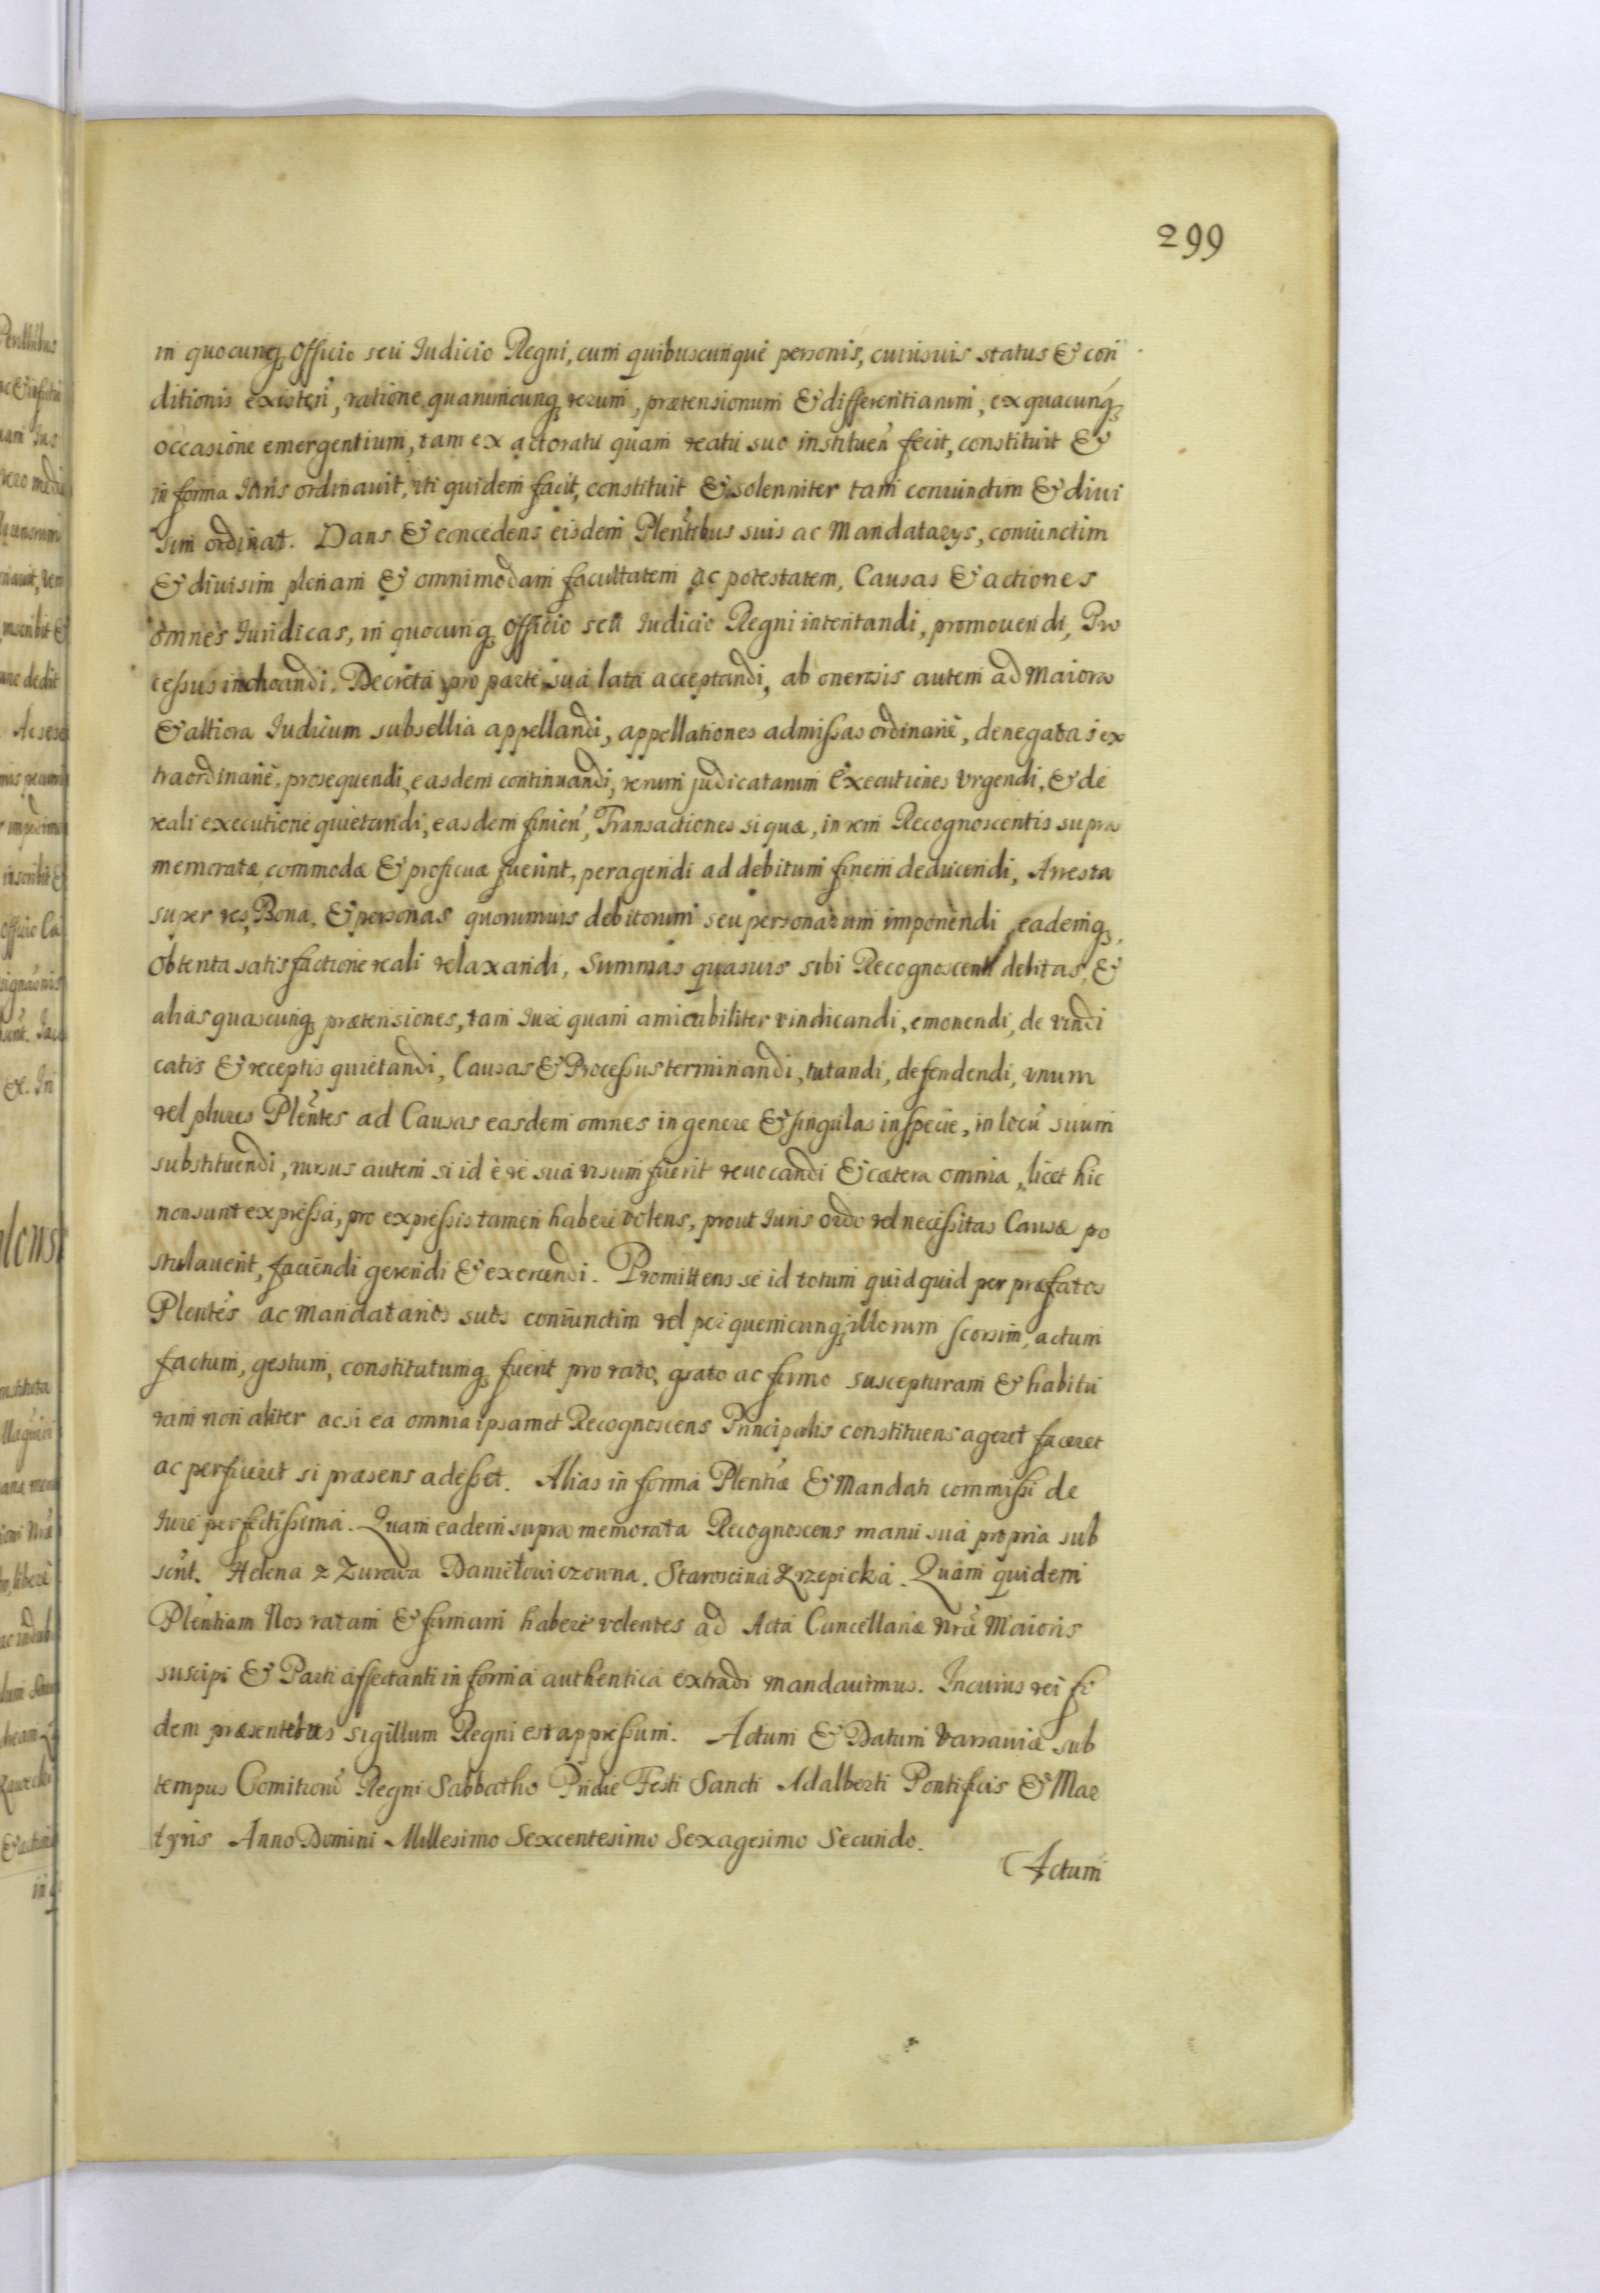 299
in quocunq́ Officio seu Iudicio Regni, cum quibuscunque personis, cuiusuis status & con
ditionis existeñ, ratione quarumcunq́ rerum, prætensionum & differentiarum, ex quacunq́
occasione emergentium, tam ex actoratu quam reatu suo institueñ fecit, constituit &
in forma Iuris ordinauit, uti quidem facit, constituit & solenniter tam coniunctim & diui
sim ordinat. Dans & concedens eisdem Pleñtibus suis ac Mandatarys, coniunctim
& diuisim plenam & omnimodam facultatem ac potestatem, Causas & actiones
omnes Iuridicas, in quocunq́ Officio seu Iudicio Regni intentandi, promouendi, Pro
cessus inchoandi. Decreta pro parte sua lata acceptandi, ab onerosis autem ad Maiora
& altiora Iudicium subsellia appellandi, appellationes admissas ordinarie, denegatas ex
traordinarie, prosequendi, easdem continuandi, rerum judicatarum Executiones Vrgendi, & de
reali executione quietandi, easdem finieñ, Transactiones si quæ, in rem Recognoscentis supra
memoratæ commodæ & proficuæ fuerint, peragendi ad debitum finem deducendi, Arresta
super res, Bona, & personas quorumuis debitorum seu personarum imponendi, eademq́
Obtenta satisfactione reali relaxandi, Summas quasuis sibi Recognoscenti debitas, &
alias quascunq́ prætensiones, tam Iure quam amicabiliter vindicandi, emonendi, de vindi
catis & receptis quietandi, Causas & Processus terminandi, tutandi, defendendi, vnum
vel plures Pleñtes ad Causas easdem omnes in genere & singulas in specie, in locũ suum
substituendi, rursus autem si id è re sua visum fuerit reuocandi & cætera omnia, licet hic
non sunt expressa, pro expressis tamen haberi volens, prout Iuris ordo vel necessitas Causæ po
stulauerit, faciendi gerendi & exercendi. Promittens se id totum quidquid per præfatos
Plentes ac Mandatarios suos coniunctim vel per quemcunq́ illorum seorsim, actum
factum, gestum, constitutumq́ fuerit pro rato, grato ac firmo suscepturam & habitu
ram non aliter ac si ea omnia ipsamet Recognoscens Principalis constituens ageret faceret
ac perficeret si præsens adesset. Alias in forma Plentiæ & Mandati commissi de
Iure perfectissima. Quam eadem supra memorata Recognoscens manu sua propria sub
scñt. Helena z Zurowa Daniełowiczowna. Staroscina Krzepicka. Quam quidem
Plentiam Nos ratam & firmam habere volentes ad Acta Cancellariæ Nrã Maioris
suscipi & Parti affectanti in forma authentica extradi mandauimus. In cuius rei fi
dem præsentibus sigillum Regni est appressum. Actum & Datum Varsauiæ sub
tempus Comitiorũ Regni Sabbatho Pridie Festi Sancti Adalberti Pontificis & Mar
tyris Anno Domini Millesimo Sexcentesimo Sexagesimo Secundo.
Actum